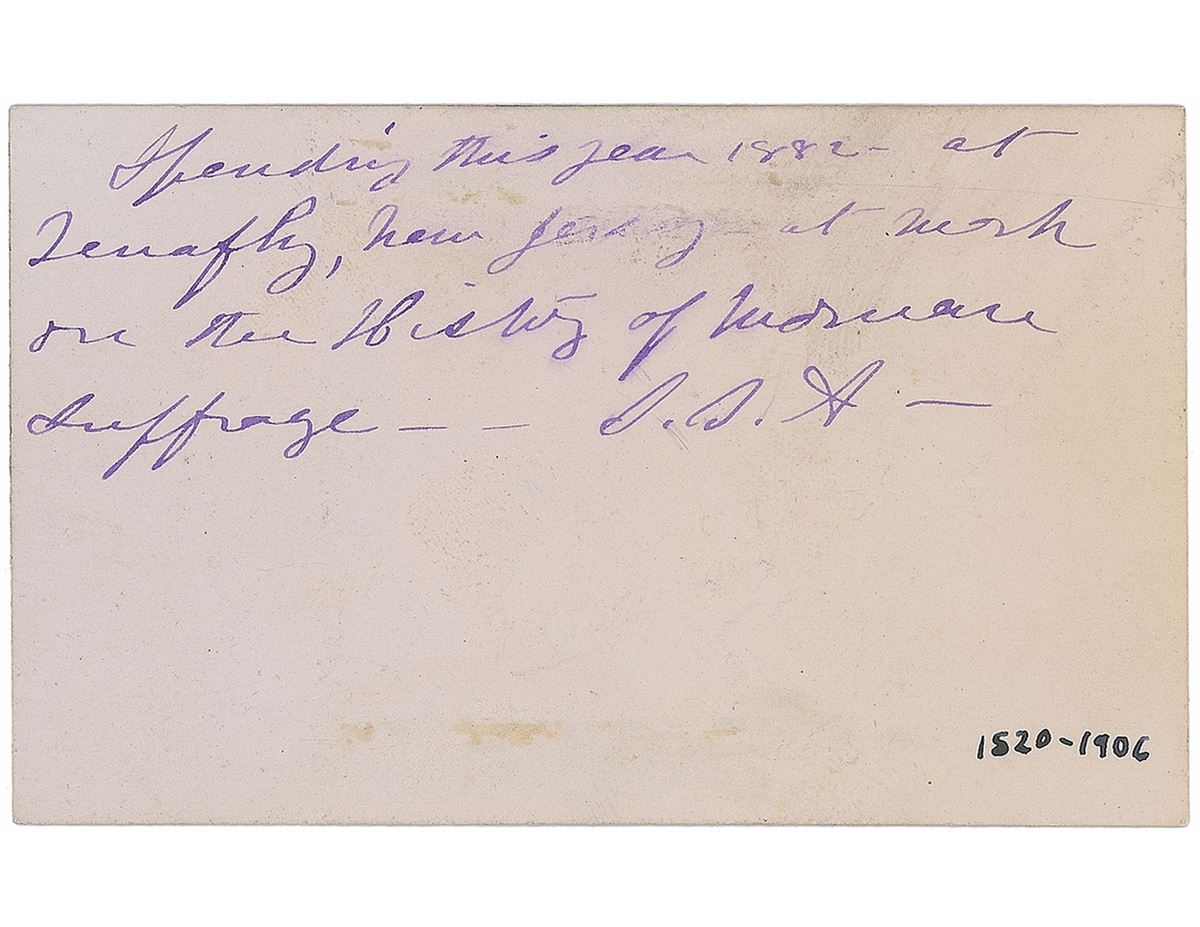 Spending this year 1882 - at
Tenafly, New Jersey - at work
on the History of Woman
Suffrage — — S. B. A —
1820-1906